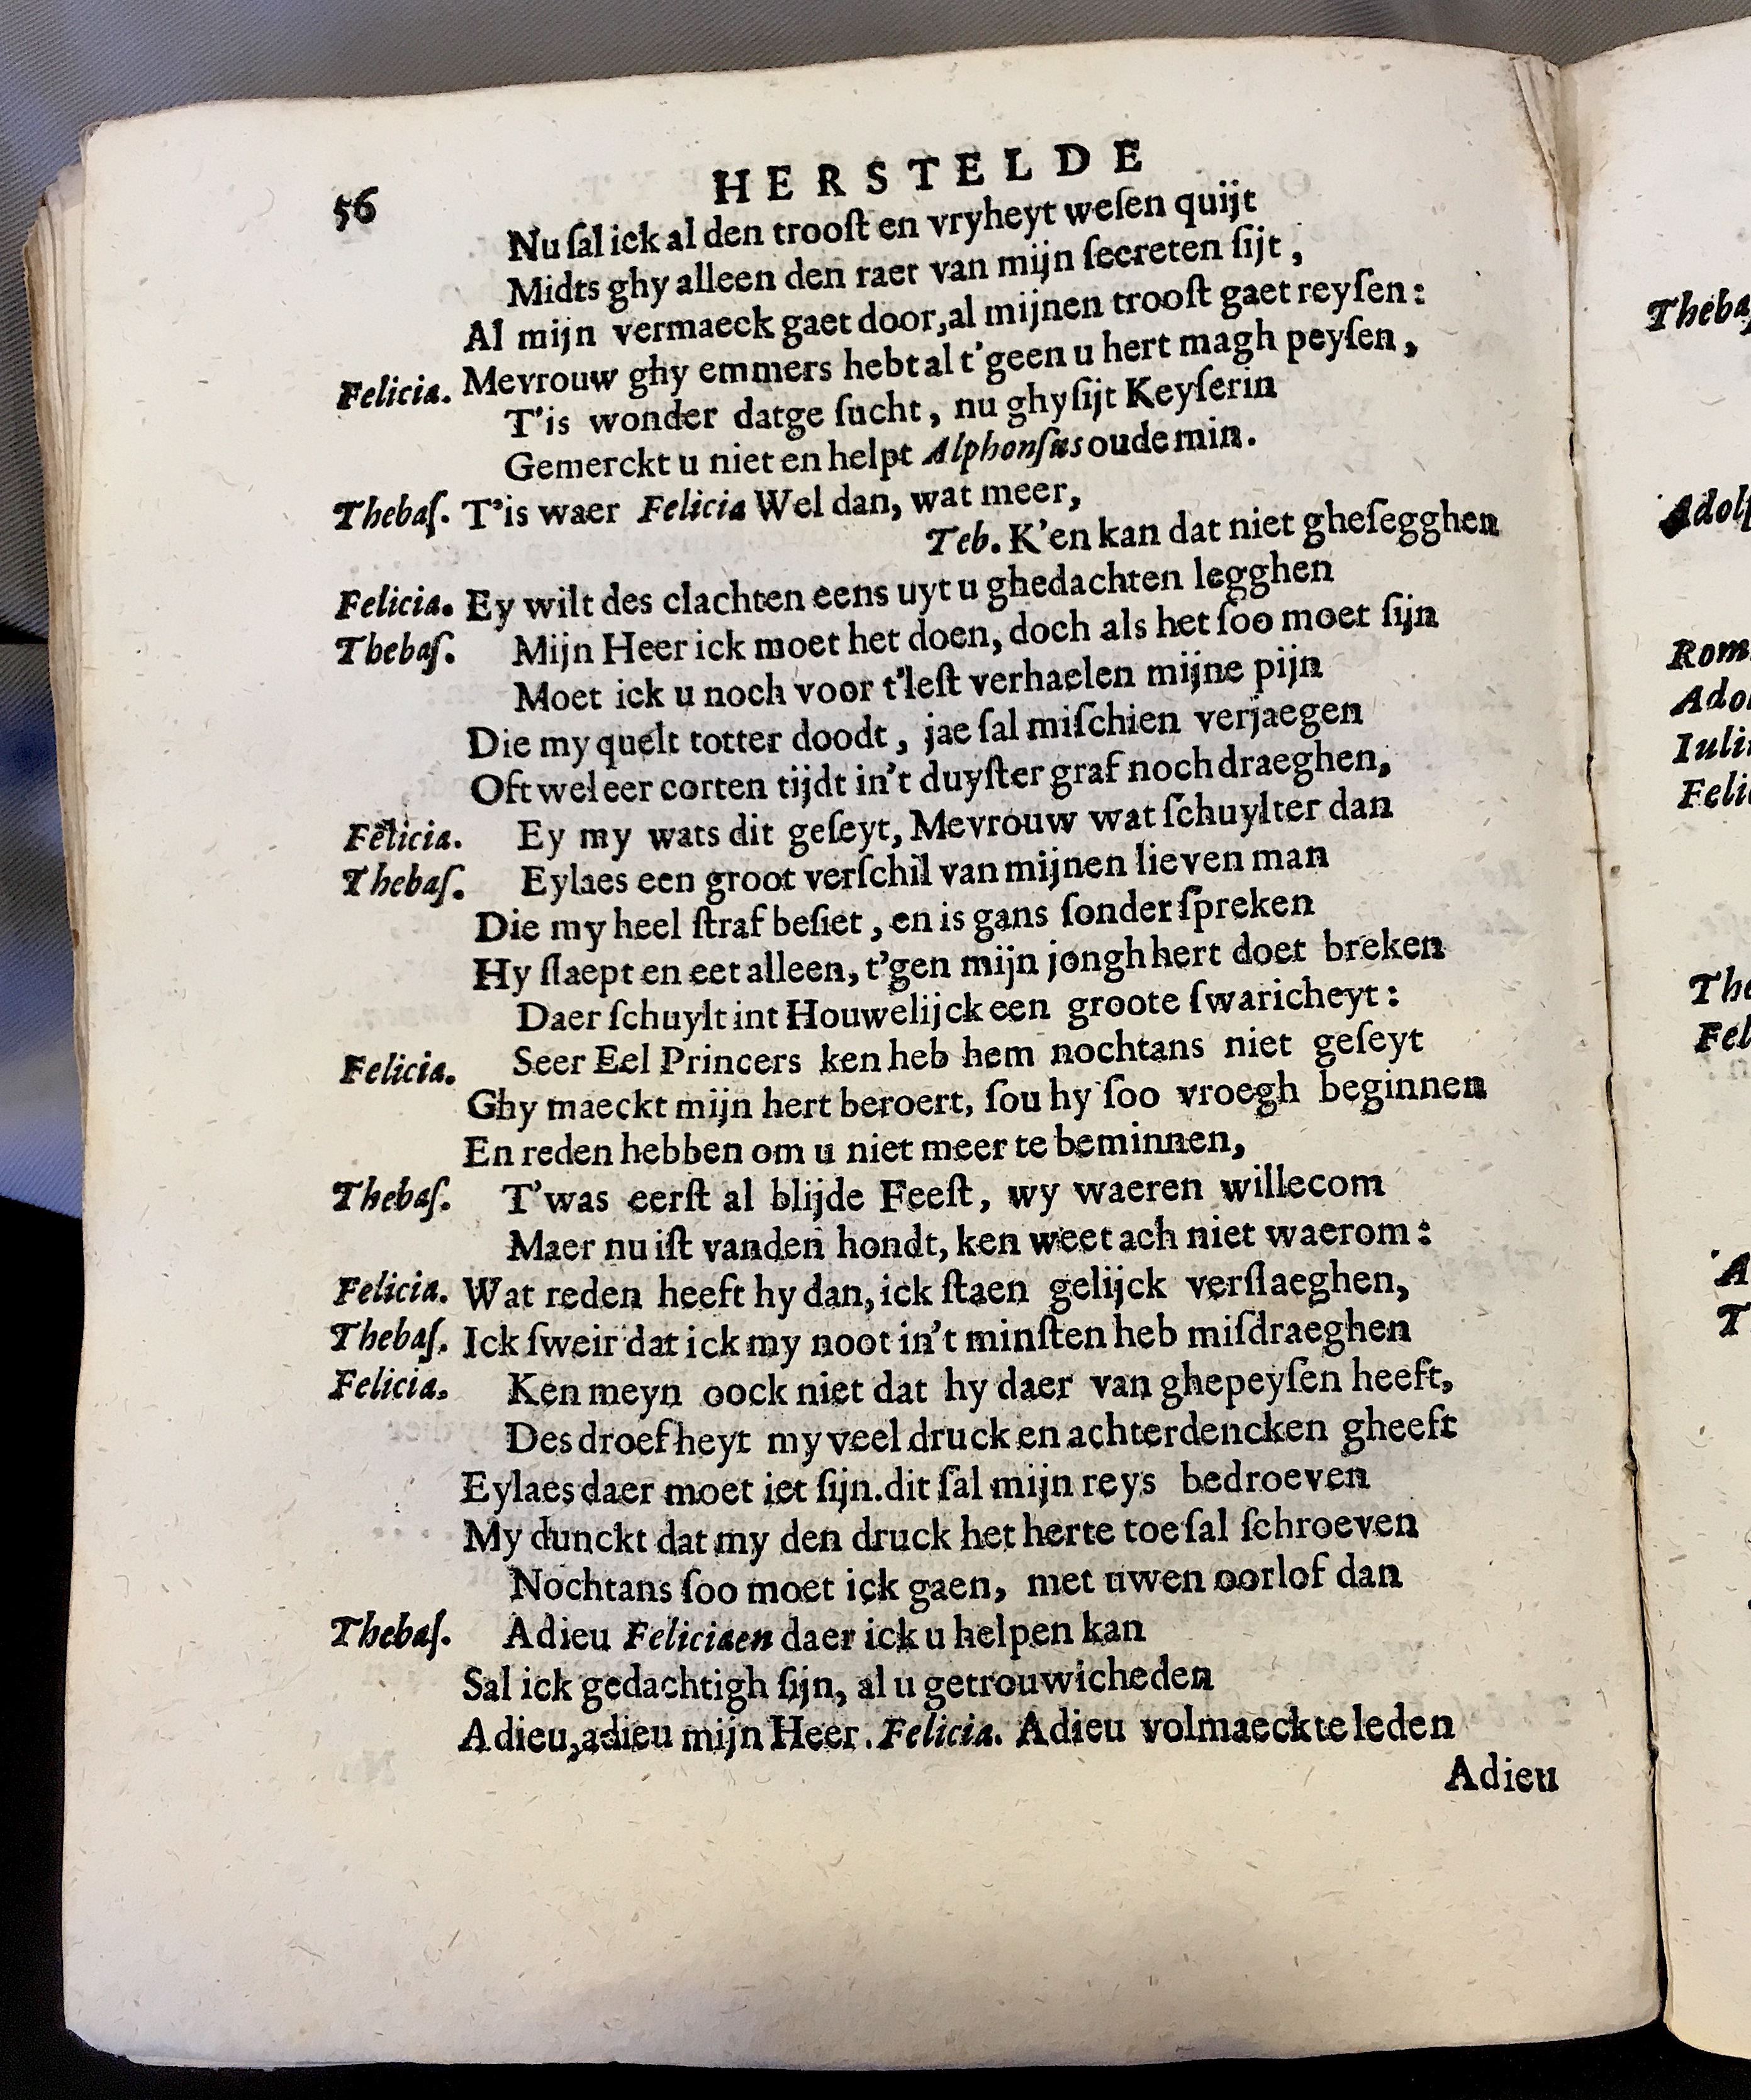 56 HERSTELDE
Nu ſal ick al den trooſt en vryheyt weſen quijt
Midts ghy alleen den raet van mijn ſecreten ſijt,
Al mijn vermaeck gaet door, al mijnen trooſt gaet reyſen:
Felicia. Mevrouw ghy emmers hebt al t'geen u hert magh peyſen,
T'is wonder datge ſucht, nu ghy ſijt Keyſerin
Gemerckt u niet en helpt Alphonſus oude min.
Thebaſ. T'is waer Felicia Wel dan, wat meer,
Teb. K'en kan dat niet gheſegghen
Felicia. Ey wilt des clachten eens uyt u ghedachten legghen
Thebaſ. Mijn Heer ick moet het doen, doch als het ſoo moet ſijn
Moet ick u noch voor t'leſt verhaelen mijne pijn
Die my quelt totter doodt, jae ſal miſchien verjaegen
Oft wel eer corten tijdt in't duyſter graf noch draeghen,
Felicia. Ey my wats dit geſeyt, Mevrouw wat ſchuylter dan
Thebaſ. Eylaes een groot verſchil van mijnen lieven man
Die my heel ſtraf beſiet, en is gans ſonder ſpreken
Hy ſlaept en eet alleen, t'gen mijn jongh hert doet breken
Daer ſchuylt int Houwelijck een groote ſwaricheyt:
Felicia. Seer Eel Princers ken heb hem nochtans niet geſeyt
Ghy maeckt mijn hert beroert, ſou hy ſoo vroegh beginnen
En reden hebben om u niet meer te beminnen,
Thebaſ. T'was eerſt al blijde Feeſt, wy waeren willecom
Maer nu iſt vanden hondt, ken weet ach niet waerom:
Felicia. Wat reden heeft hy dan, ick ſtaen gelijck verſlaeghen,
Thebaſ. Ick ſweir dat ick my noot in't minſten heb miſdraeghen
Felicia. Ken meyn oock niet dat hy daer van ghepeyſen heeft,
Des droefheyt my veel druck en achterdencken gheeft
Eylaes daer moet iet ſijn. dit ſal mijn reys bedroeven
My dunckt dat my den druck het herte toe ſal ſchroeven
Nochtans ſoo moet ick gaen, met uwen oorlof dan
Thebaſ. Adieu Felicia en daer ick u helpen kan
Sal ick gedachtigh ſijn, al u getrouwicheden
Adieu, adieu mijn Heer. Felicia. Adieu volmaeckte leden
Adieu
Adolp
Rom
Iuli
Feli
The
Fel
A
T